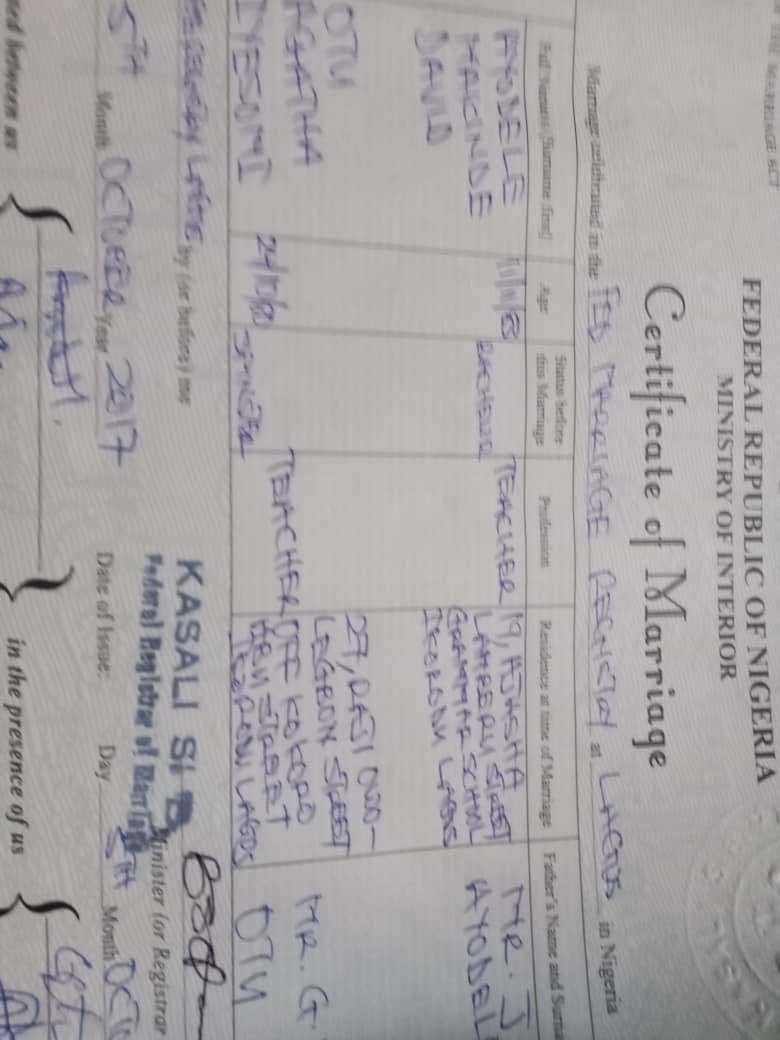 THE MARRIAGE ACT
FEDERAL REPUBLIC OF NIGERIA
MINISTRY OF INTERIOR
Certificate of Marriage
Marriage celebrated in the FED MARRIAGE REGISTRY at LAGOS in Nigeria
Full Names (Surname first) Age Status before this Marriage Profession Residence at time of Marriage Father's Name and Surna
AYODELE MAKINDE DAVID BACHELOR TEACHER 19, LAMBERU STREET GRAMMAR SCHOOL IKORODU LAGOS MR. J AYODEL
OTU AGATHA IYESOMI 24/10/80 SPINSTER TEACHER 27, STREET OFF KOKORO STREET IKORODU LAGOS MR. G. OTU
by (or before) me
KASALI
Federal Registrar of Marriage
Minister (or Registrar
5TH Month OCTOBER Year 2017 Date of Issue: Day 5TH Month OCTO
ted between us in the presence of us